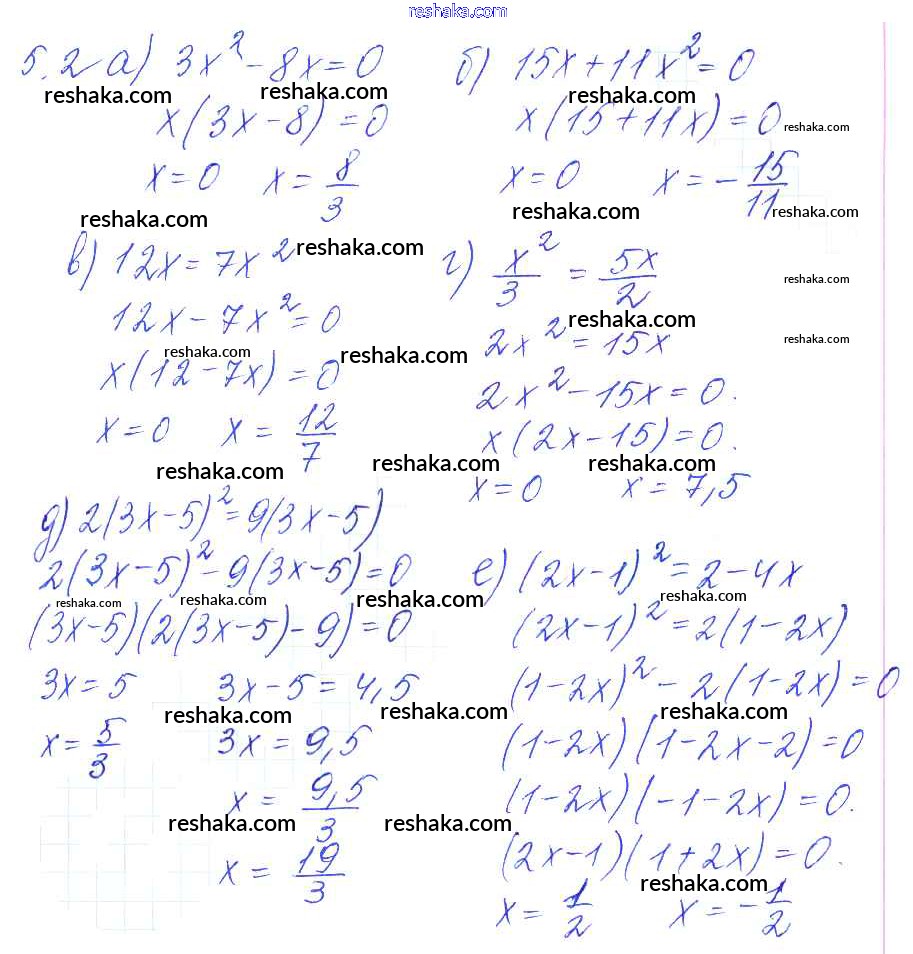 reshaka.com
5.2 а) 3x² - 8x = 0
reshaka.com reshaka.com
x(3x - 8) = 0
x = 0 x = 8/3
reshaka.com
б) 15x + 11x² = 0
reshaka.com
x(15 + 11x) = 0
reshaka.com
x = 0 x = - 15/11
reshaka.com reshaka.com
в) 12x = 7x²
reshaka.com
12x - 7x² = 0
reshaka.com reshaka.com
x(12 - 7x) = 0
x = 0 x = 12/7
reshaka.com
г) x²/3 = 5x/2
reshaka.com
reshaka.com
2x² = 15x
reshaka.com
2x² - 15x = 0.
x(2x - 15) = 0.
reshaka.com reshaka.com
x = 0 x = 7,5
д) 2(3x - 5)² = 9(3x - 5)
2(3x - 5)² - 9(3x - 5) = 0
reshaka.com reshaka.com reshaka.com
(3x - 5)(2(3x - 5) - 9) = 0
3x = 5 3x - 5 = 4,5
reshaka.com reshaka.com
x = 5/3 3x = 9,5
x = 9,5/3
reshaka.com reshaka.com
x = 19/3
е) (2x - 1)² = 2 - 4x
reshaka.com
(2x - 1)² = 2(1 - 2x)
(1 - 2x)² - 2(1 - 2x) = 0
reshaka.com
(1 - 2x)(1 - 2x - 2) = 0
(1 - 2x)(-1 - 2x) = 0.
(2x - 1)(1 + 2x) = 0.
reshaka.com
x = 1/2 x = - 1/2